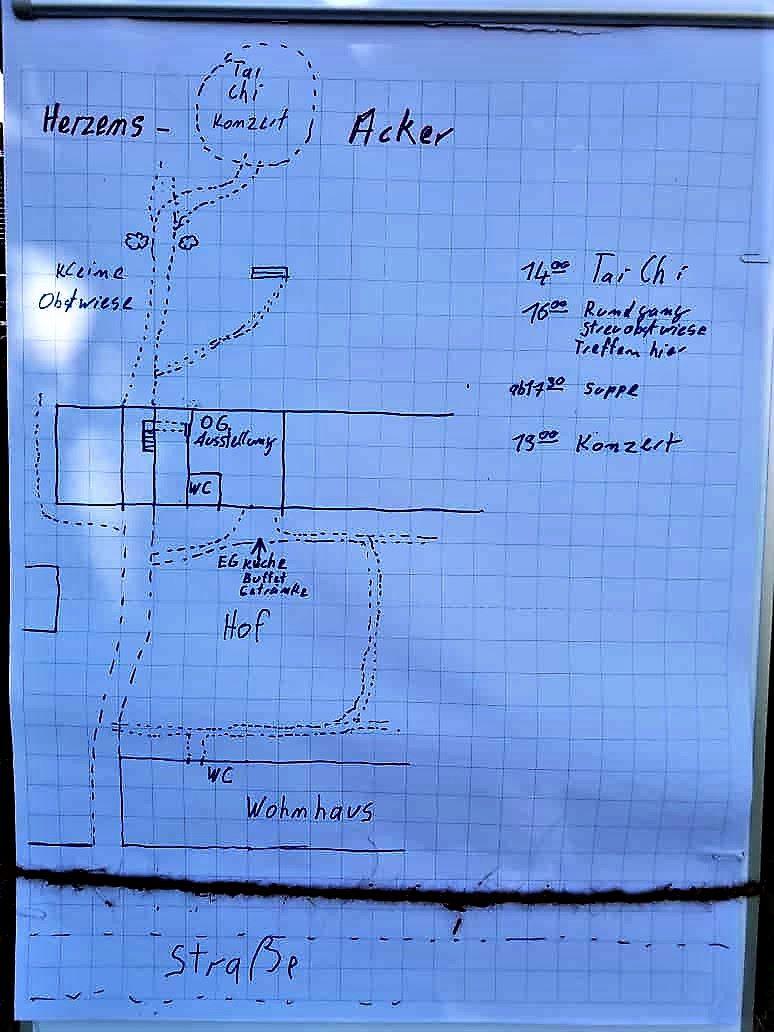 Tai
Chi
Konzert
Herzens - Acker
Kleine
Obstwiese
14⁰⁰ Tai Chi
16⁰⁰ Rundgang
Streuobstwiese
Treffen hier
ab 17³⁰ Suppe
19⁰⁰ Konzert
OG
Ausstellung
WC
EG Küche
Buffet
Getränke
Hof
WC
Wohnhaus
Straße